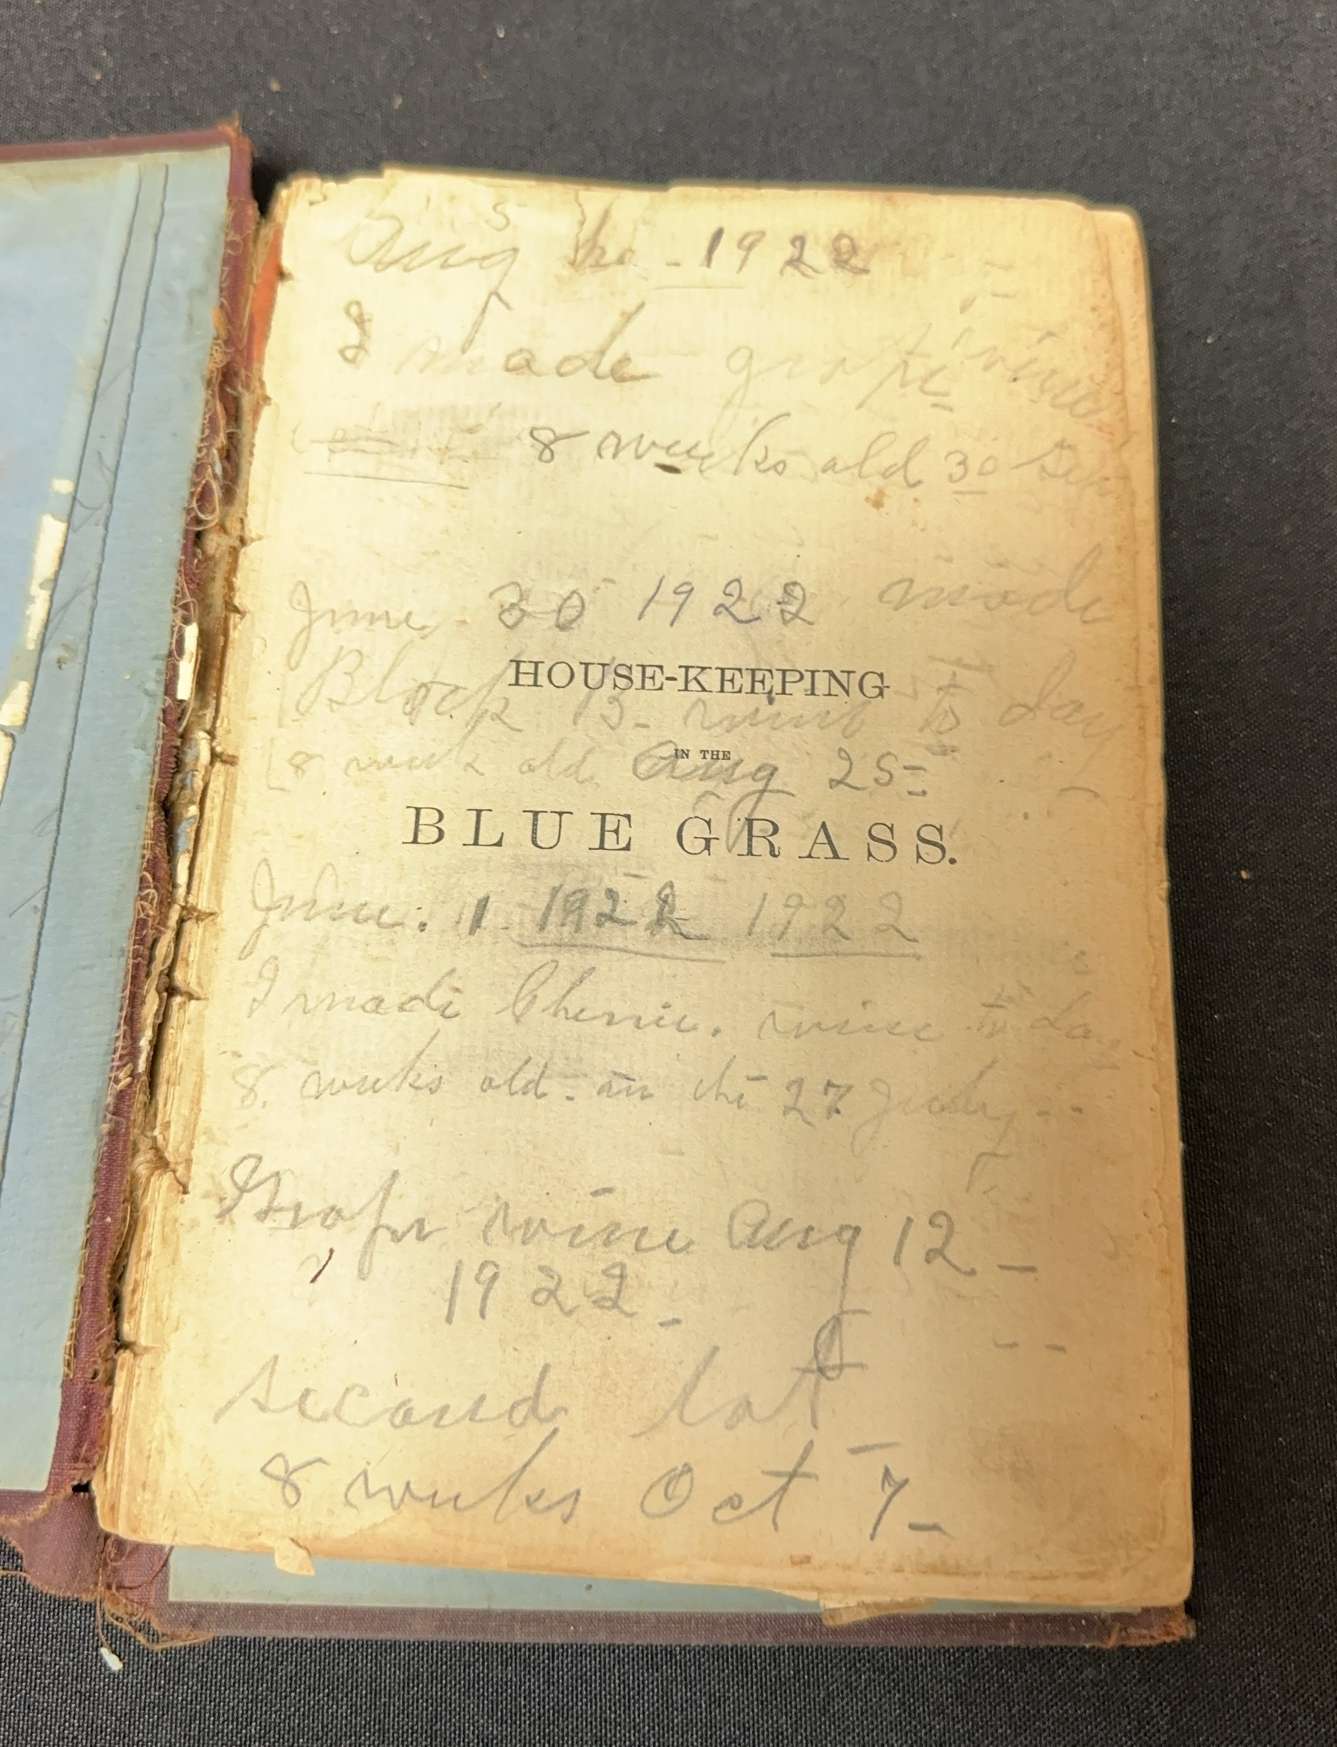 Aug 1922
I made grape wine
8 weeks old 30
June 30 1922 made
HOUSE-KEEPING
Black B. wine to day
IN THE
8 weeks old Aug 25
BLUE GRASS.
June. 1 1922 1922
I made Cherrie. wine to day
8. weeks old on the 27 July
Grape wine Aug 12
1922
second lot
8 weeks Oct 7